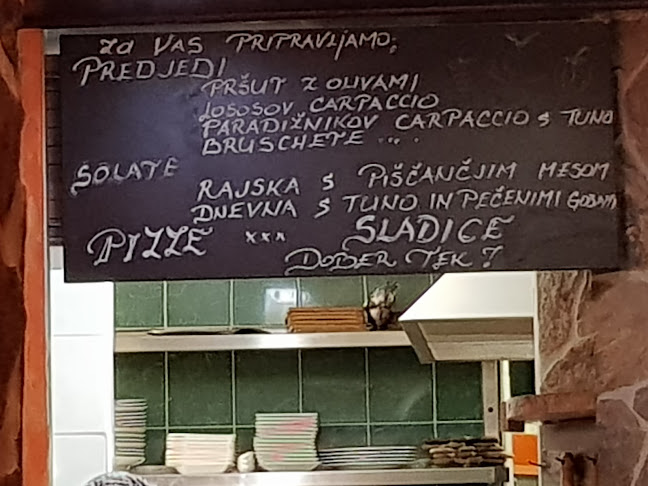 ZA VAS PRIPRAVLJAMO:
PREDJEDI
PRŠUT Z OLIVAMI
LOSOSOV CARPACCIO
PARADIŽNIKOV CARPACCIO S TUNO
BRUSCHETE ...
SOLATE
RAJSKA S PIŠČANČJIM MESOM
DNEVNA S TUNO IN PEČENIMI GOBAMI
PIZZE xxx SLADICE
DOBER TEK!